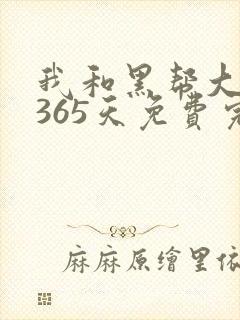 我和黑帮大
365天免費完
麻麻原繪里依